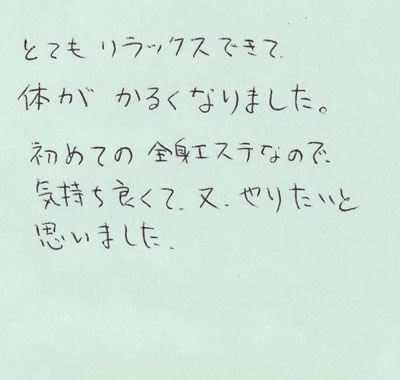 とてもリラックスできて、
体が かるくなりました。
初めての 全身エステなので、
気持ち良くて、又、やりたいと
思いました。